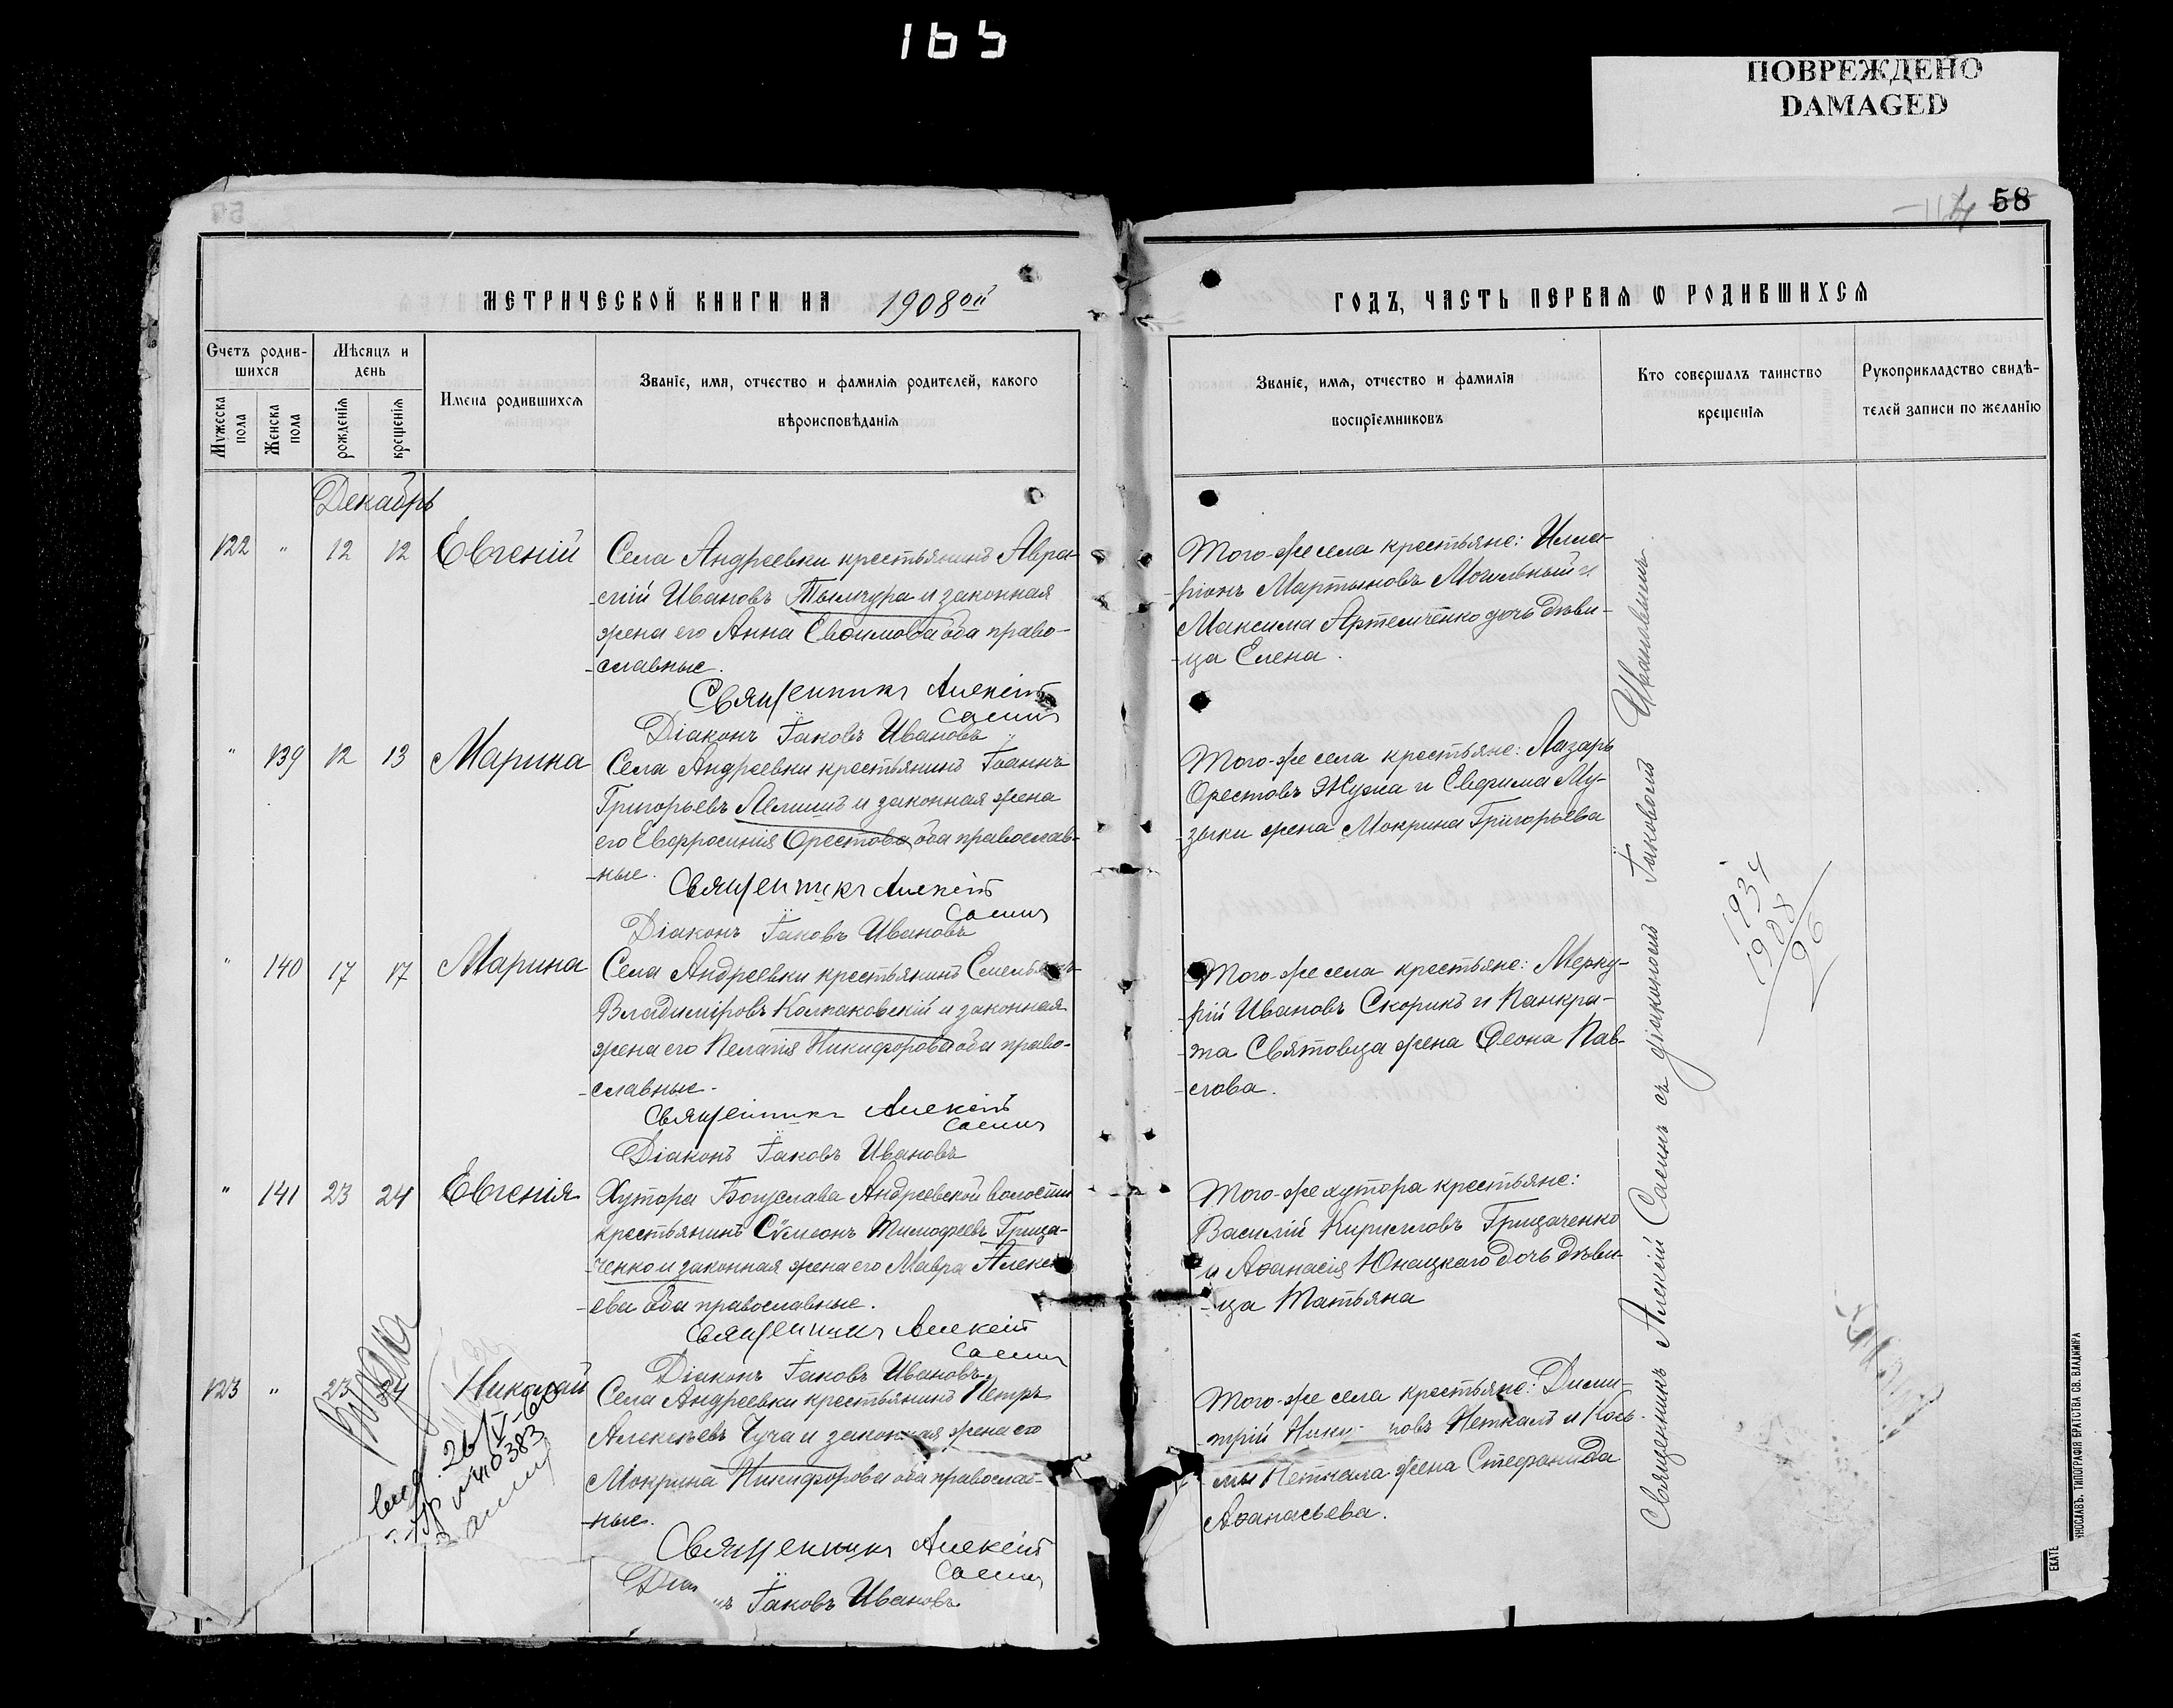 165
ПОВРЕЖДЕНО
DAMAGED
58
МЕТРИЧЕСКОЙ КНИГИ НА 1908ой
ГОДЪ, ЧАСТЬ ПЕРВАЯ Ѡ РОДИВШИХСЯ
Счетъ родив-
шихся
Мужеска пола
Женска пола
Мѣсяцъ и
день
рожденія
крещенія
Имена родившихся
Званіе, имя, отчество и фамилія родителей, какого
вѣроисповѣданія
Званіе, имя, отчество и фамилія
воспріемниковъ
Кто совершалъ таинство
крещенія
Рукоприкладство свидѣ-
телей записи по желанію
Декабрь
122 " 12 12 Евгеній
Села Андреевки крестьянинъ Авра-
-мій Ивановъ Тымчура и законная
жена его Анна Евѳимова оба право-
-славные.
Священникъ Алексій
Саенъ
Діаконъ Іаковъ Ивановъ
Того-же села крестьяне: Илла-
-ріонъ Мартыновъ Могильный и
Максима Артемченко дочь дѣви-
-ца Елена.
" 139 12 13 Марина
Села Андреевки крестьянинъ Іоаннъ
Григорьевъ Лемишъ и законная жена
его Евфросинія Орестова оба православ-
-ные.
Священникъ Алексій
Саенъ
Діаконъ Іаковъ Ивановъ
Того-же села крестьяне: Лазарь
Орестовъ Жужа и Евфима Му-
-зыки жена Мокрина Григорьева
" 140 17 17 Марина
Села Андреевки крестьянинъ Емельянъ
Владиміровъ Колпаковскій и законная
жена его Пелагія Никифорова оба право-
-славные.
Священникъ Алексій
Саенъ
Діаконъ Іаковъ Ивановъ
Того-же села крестьяне: Мерку-
-рій Ивановъ Скорикъ и Панкра-
-та Святовца жена Ѳеона Пав-
-лова.
" 141 23 24 Евгенія
Хутора Богуслава Андреевской волости
крестьянинъ Сѵмеонъ Тимофеевъ Грица-
-ченко и законная жена его Мавра Алексѣ-
-ева оба православные.
Священникъ Алексій
Саенъ
Діаконъ Іаковъ Ивановъ
Того-же хутора крестьяне:
Василій Кирилловъ Грицаченко
и Аѳанасія Юнацкаго дочь дѣви-
-ца Татьяна
123 " 23 24 Николай
Села Андреевки крестьянинъ Петръ
Алексѣевъ Чуча и законная жена его
Мокрина Никифорова оба православ-
-ные.
Священникъ Алексій
Саенъ
Діа нъ Іаковъ Ивановъ
Того-же села крестьяне: Дими-
-трій Ники- ровъ Неткалъ и Кось-
-мы Неткала жена Стефанида
Аѳанасьева.
26/V-60
№ 410383
Священникъ Алексій Саенъ съ діакономъ Іаковомъ Ивановымъ.
1934
1908
26
ЕКАТЕ
РИНОСЛАВЪ. ТИПОГРАФІЯ БРАТСТВА СВ. ВЛАДИМІРА